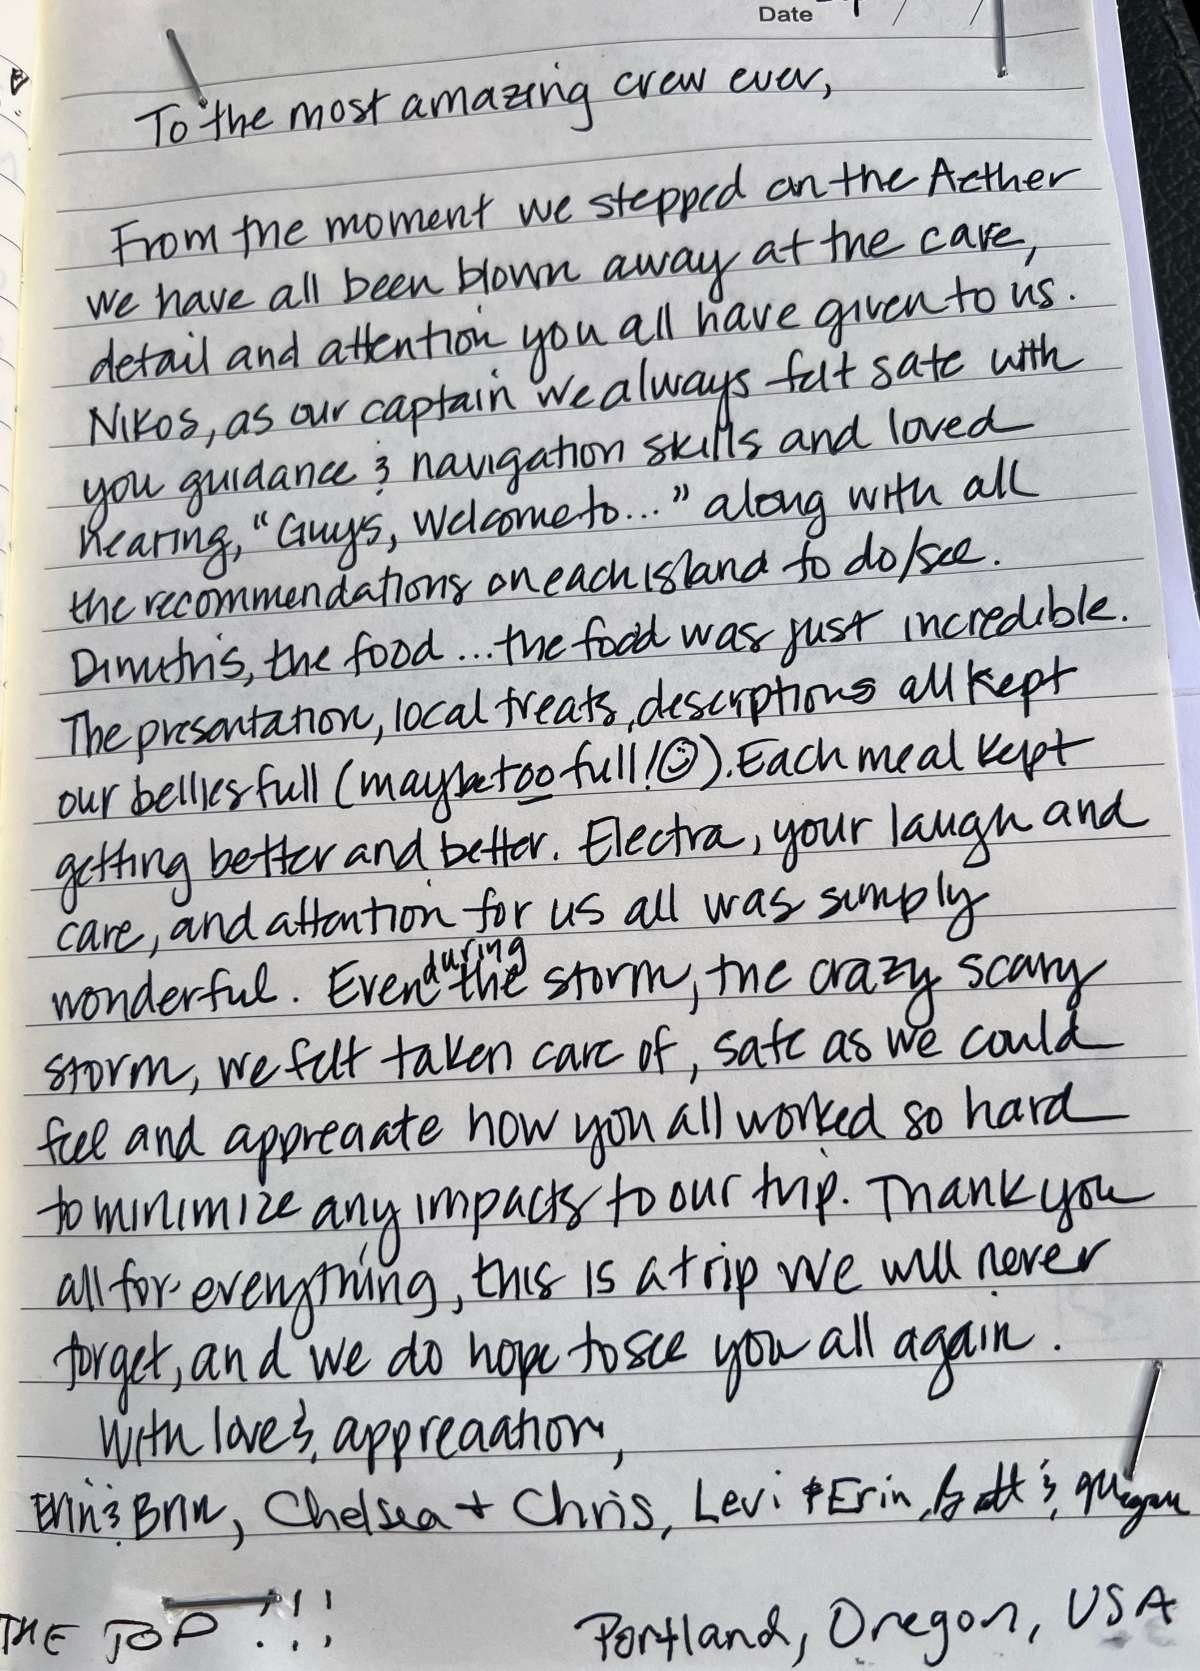 Date
To the most amazing crew ever,
From the moment we stepped on the Aether
we have all been blown away at the care,
detail and attention you all have given to us.
Nikos, as our captain we always felt safe with
you guidance & navigation skills and loved
hearing, "Guys, Welcome to..." along with all
the recommendations on each island to do/see.
Dimitris, the food ... the food was just incredible.
The presentation, local treats, descriptions all kept
our bellies full (maybe too full! ☺). Each meal kept
getting better and better. Electra, your laugh and
care, and attention for us all was simply
wonderful. Even during the storm, the crazy scary
storm, we felt taken care of, safe as we could
feel and appreciate how you all worked so hard
to minimize any impacts to our trip. Thank you
all for everything, this is a trip we will never
forget, and we do hope to see you all again.
With love & appreciation,
Erin & Brin, Chelsea + Chris, Levi & Erin, & Megan
THE TOP !!!
Portland, Oregon, USA